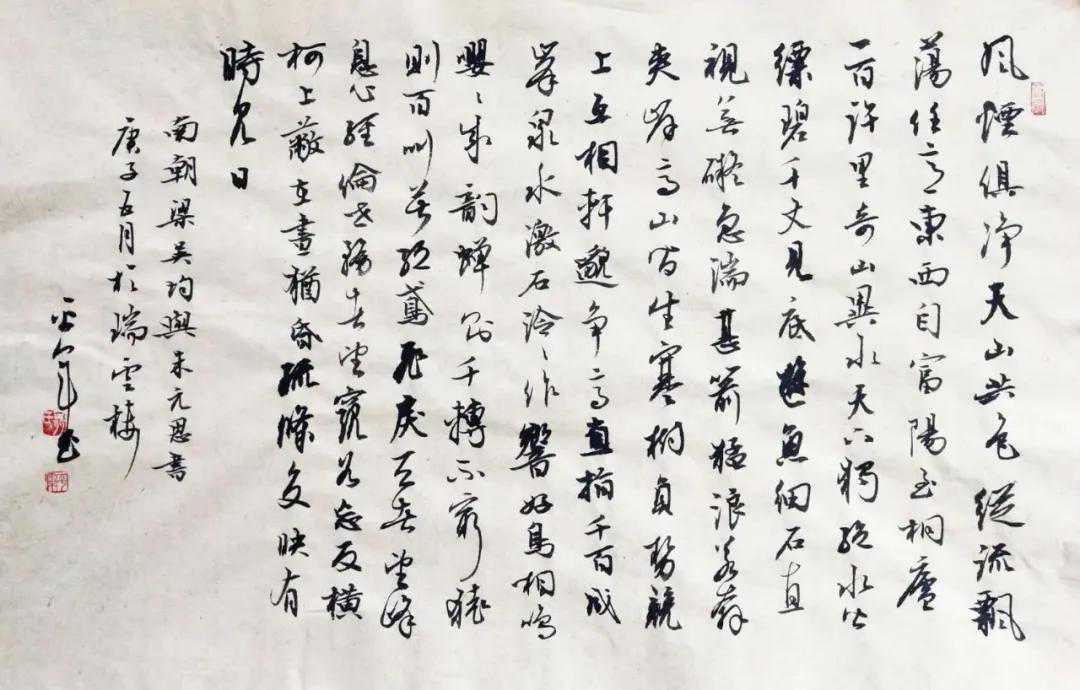 風煙俱净天山共色從流飄
蕩任意東西自富陽至桐廬
一百許里奇山異水天下獨絕水皆
縹碧千丈見底遊魚細石直
視無礙急湍甚箭猛浪若奔
夾岸高山皆生寒樹負勢競
上互相軒邈争高直指千百成
峯泉水激石泠〻作響好鳥相鳴
嚶〻成韻蟬則千轉不窮猿
則百叫無絕鳶飛戾天者望峰
息心經倫世務者望窺谷忘反橫
柯上蔽在晝猶昏疏條交映有
時見日
南朝梁吳均與朱元思書
庚子五月於瑞雲樓